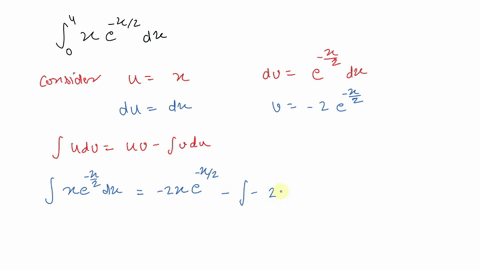 ∫₀⁴ x e^{-x/2} dx
Consider u = x dv = e^{-x/2} dx
du = dx v = -2 e^{-x/2}
∫ u dv = uv - ∫ v du
∫ x e^{-x/2} dx = -2x e^{-x/2} - ∫ - 2